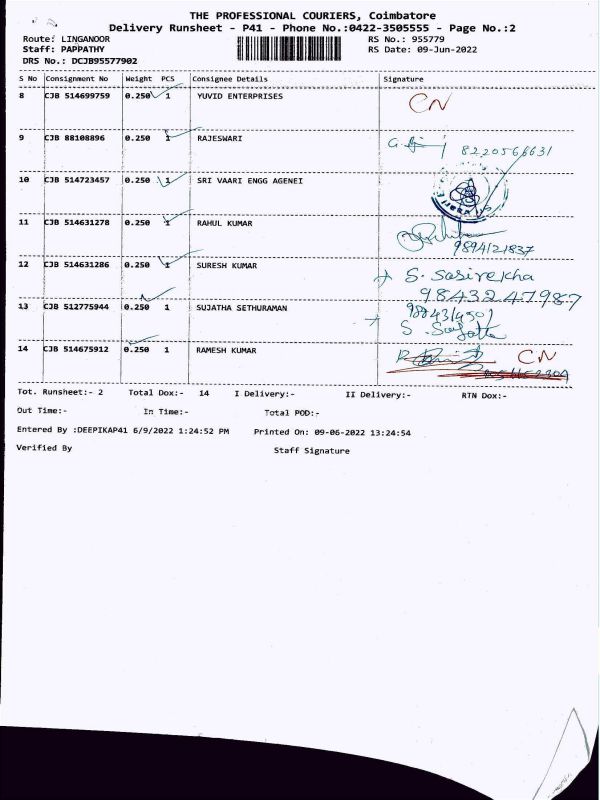 THE PROFESSIONAL COURIERS, Coimbatore
Delivery Runsheet - P41 - Phone No.:0422-3505555 - Page No.:2
Route: LINGANOOR RS No.: 955779
Staff: PAPPATHY RS Date: 09-Jun-2022
DRS No.: DCJB95577902
S No Consignment No Weight PCS Consignee Details Signature
8 CJB 514699759 0.250 1 YUVID ENTERPRISES CN
9 CJB 88108896 0.250 1 RAJESWARI 8220566631
10 CJB 514723457 0.250 1 SRI VAARI ENGG AGENEI
11 CJB 514631278 0.250 1 RAHUL KUMAR 9894121837
12 CJB 514631286 0.250 1 SURESH KUMAR S. Sasirekha
9843247987
13 CJB 512775944 0.250 1 SUJATHA SETHURAMAN
S. Sujatha
14 CJB 514675912 0.250 1 RAMESH KUMAR CN
Tot. Runsheet:- 2 Total Dox:- 14 I Delivery:- II Delivery:- RTN Dox:-
Out Time:- In Time:- Total POD:-
Entered By :DEEPIKAP41 6/9/2022 1:24:52 PM Printed On: 09-06-2022 13:24:54
Verified By Staff Signature